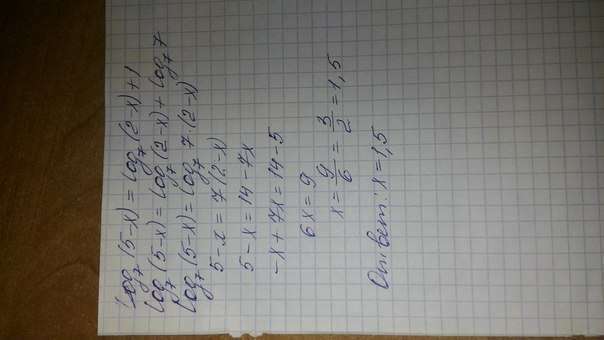 log₇(5-x) = log₇(2-x)+1
log₇(5-x) = log₇(2-x) + log₇7
log₇(5-x) = log₇ 7·(2-x)
5-x = 7(2-x)
5-x = 14-7x
-x+7x = 14-5
6x = 9
x = 9/6 = 3/2 = 1,5
Ответ: x=1,5